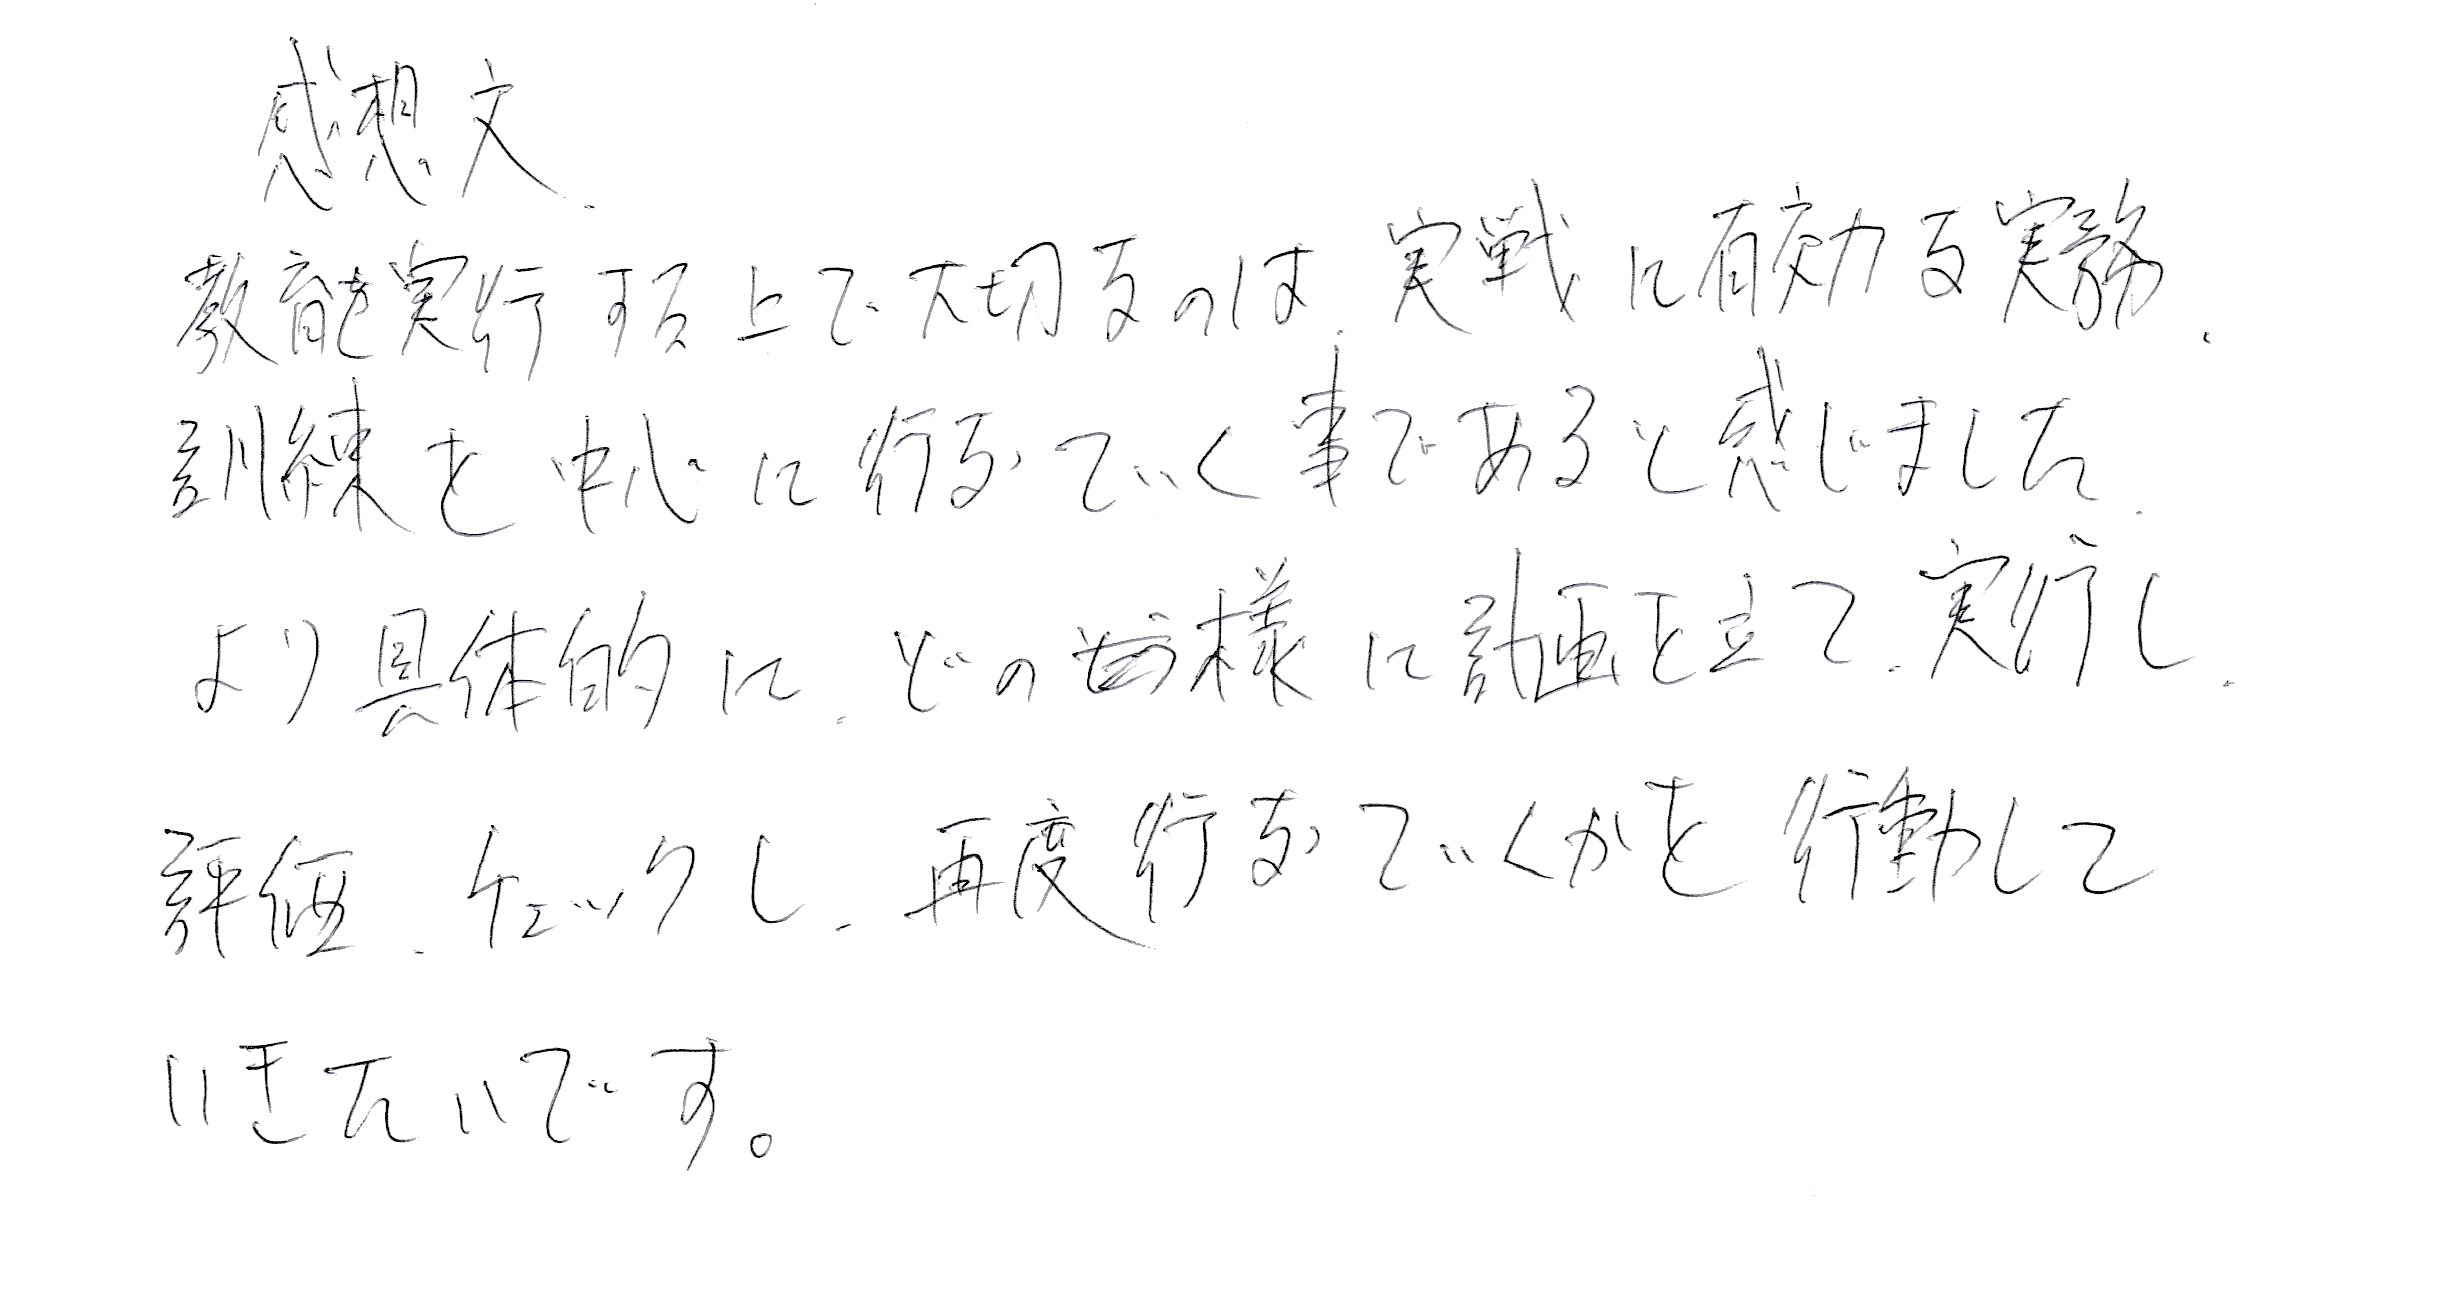 感想文.
教育を実行する上で大切なのは、実戦に有効な実務、
訓練を中心に行なっていく事であると感じました.
より具体的に、どの様に計画を立て、実行し、
評価、チェックし、再度行なっていくかを行動して
いきたいです。